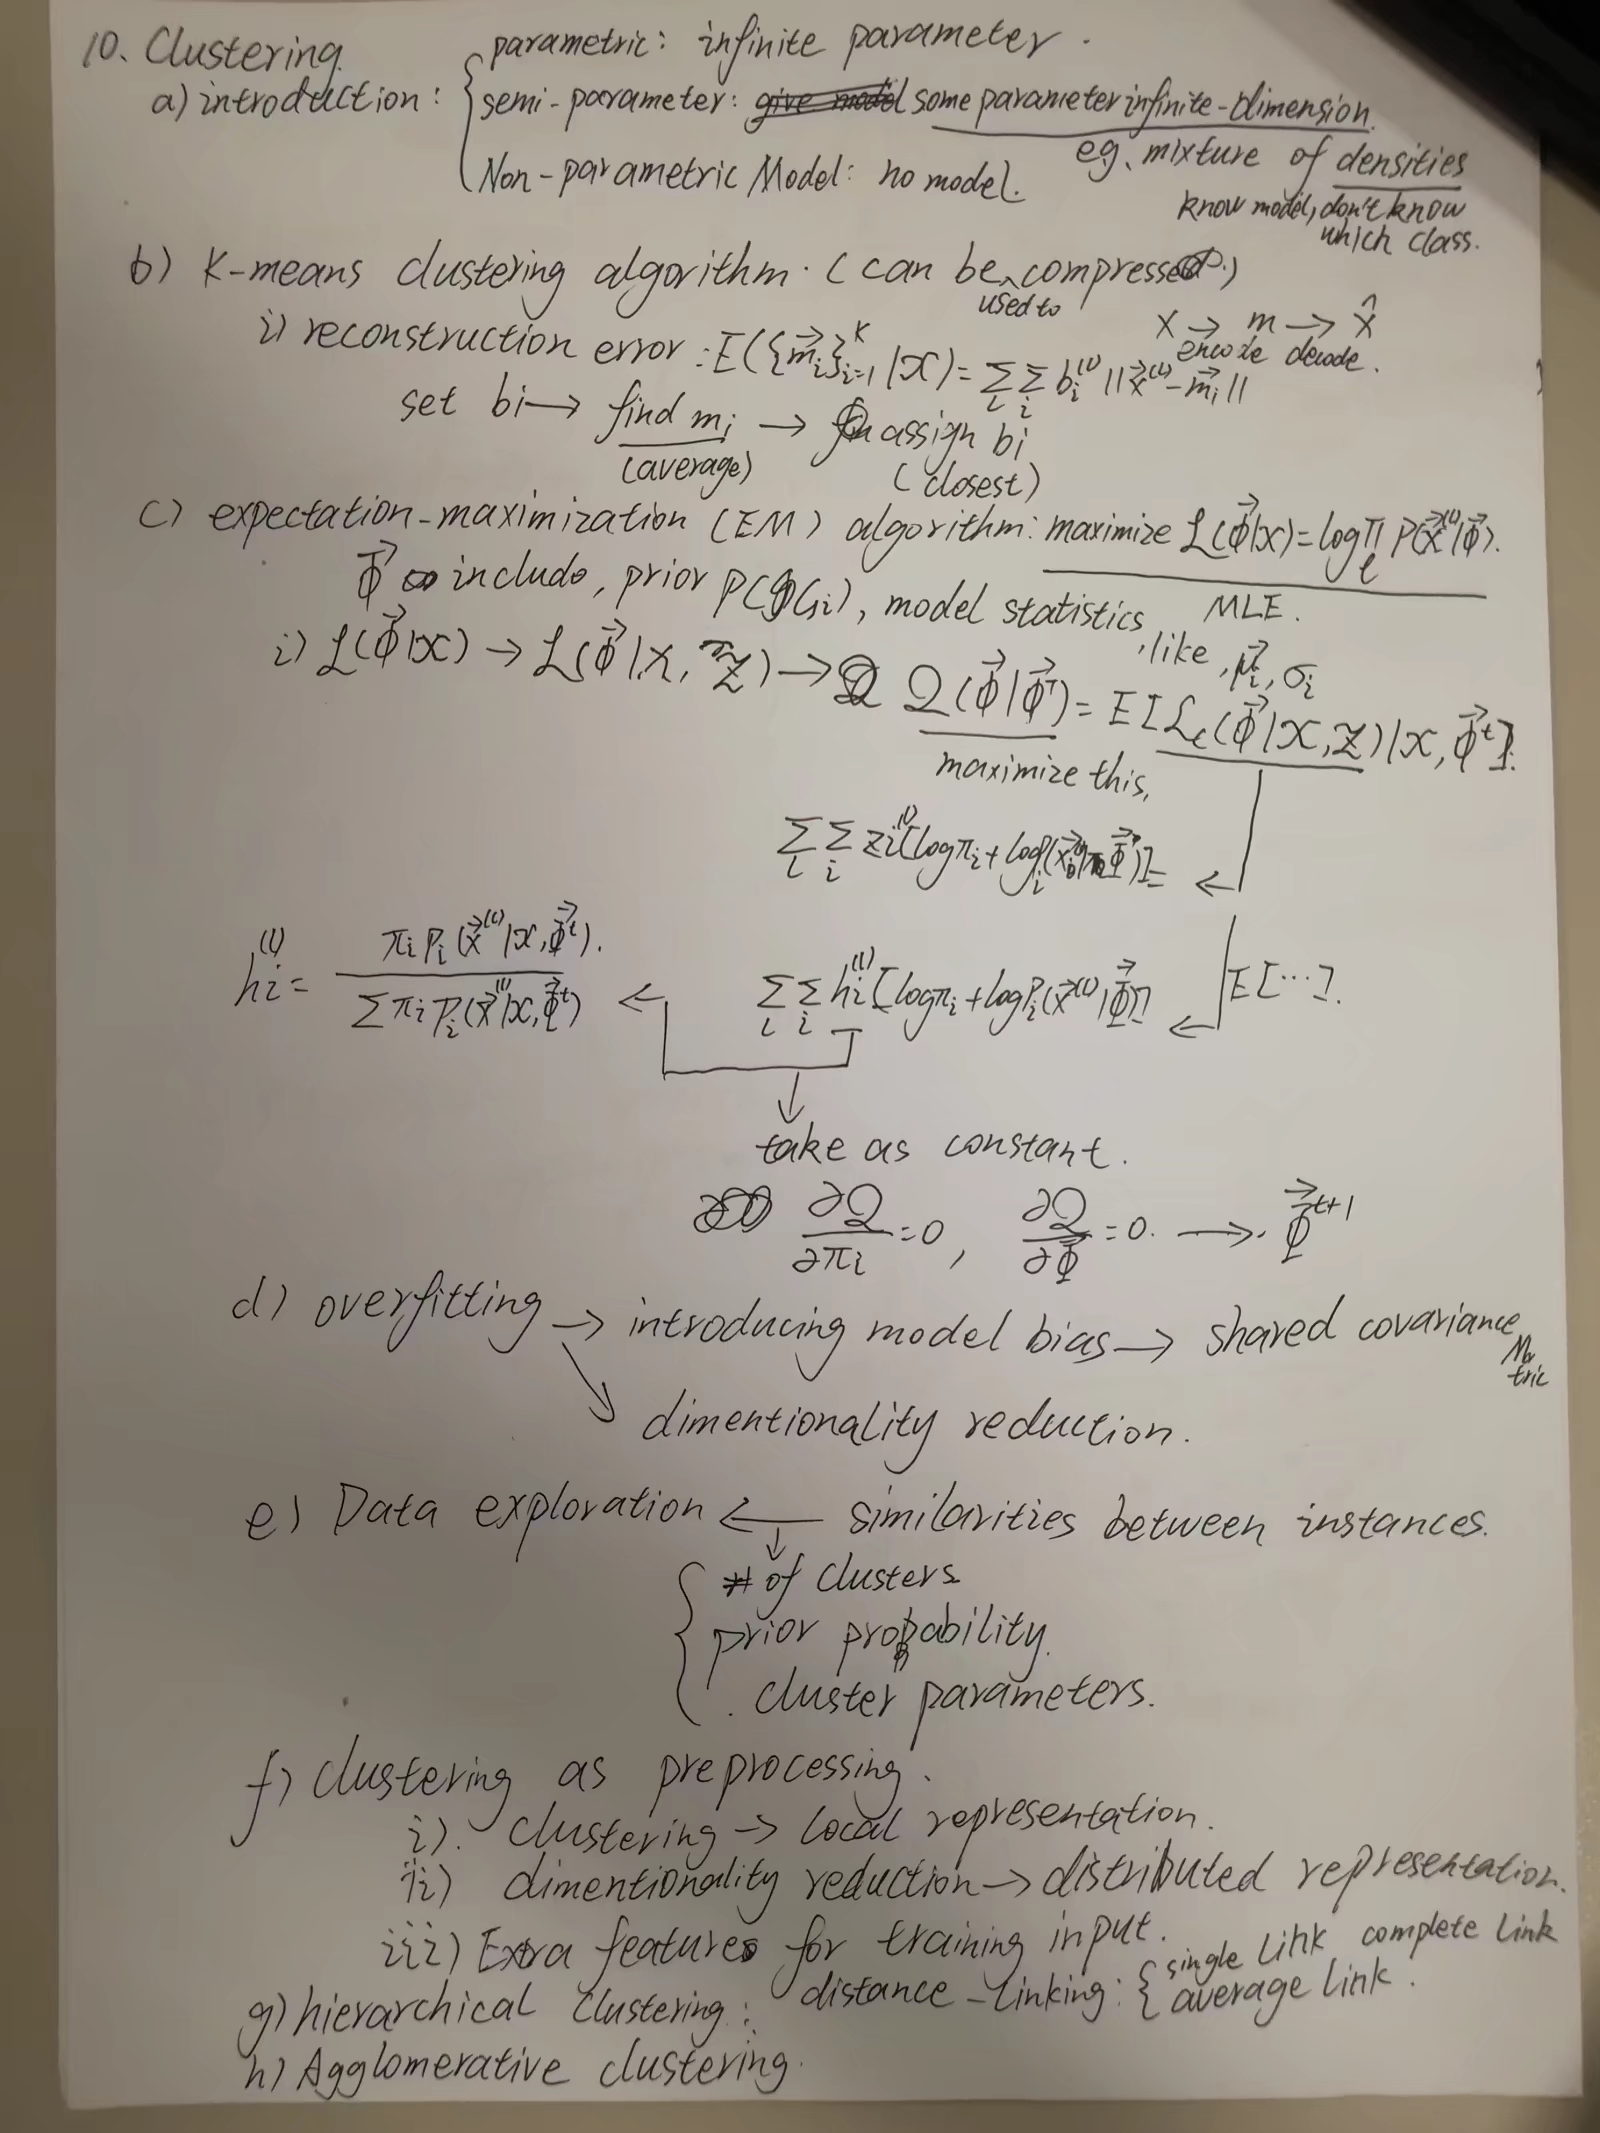 10. Clustering.
a) introduction: { parametric: infinite parameter.
semi-parameter: some parameter infinite-dimension.
e.g. mixture of densities
know model, don't know
which class.
Non-parametric Model: no model.
b) K-means clustering algorithm. (can be used to compressed.)
x → m → x̂
encode decode.
i) reconstruction error: E({m⃗_i}_{i=1}^K | X) = Σ_l Σ_i b_i^(l) ||x⃗^(l) - m⃗_i||
set bi → find m_i → assign bi
(average) (closest)
c) expectation-maximization (EM) algorithm: maximize L(Φ⃗|X) = log Π_l P(x⃗^(l)|Φ⃗).
MLE.
Φ⃗ include, prior P(G_i), model statistics, like, μ⃗_i, σ_i
i) L(Φ⃗|X) → L(Φ⃗|X, Z) → Q(Φ⃗|Φ⃗^t) = E[L_c(Φ⃗|X, Z)|X, Φ⃗^t].
maximize this,
Σ_l Σ_i z_i^(l) [log π_i + log P_i(x⃗^(l)|Φ⃗)] ←
h_i^(l) = π_i P_i(x⃗^(l)|X, Φ⃗^t). / Σ π_i P_i(x⃗^(l)|X, Φ⃗^t) ← Σ_l Σ_i h_i^(l) [log π_i + log P_i(x⃗^(l)|Φ⃗)] ← E[...].
↓
take as constant.
∂Q/∂π_i = 0, ∂Q/∂Φ = 0. → Φ⃗^{t+1}
d) overfitting → introducing model bias → shared covariance Matric
↘ dimentionality reduction.
e) Data exploration ← similarities between instances.
↓
{ # of clusters
prior probability.
cluster parameters.
f) clustering as preprocessing.
i). clustering → local representation.
ii) dimentionality reduction → distributed representation.
iii) Extra features for training input.
g) hierarchical clustering: distance-linking: { single link complete link
average link.
h) Agglomerative clustering.